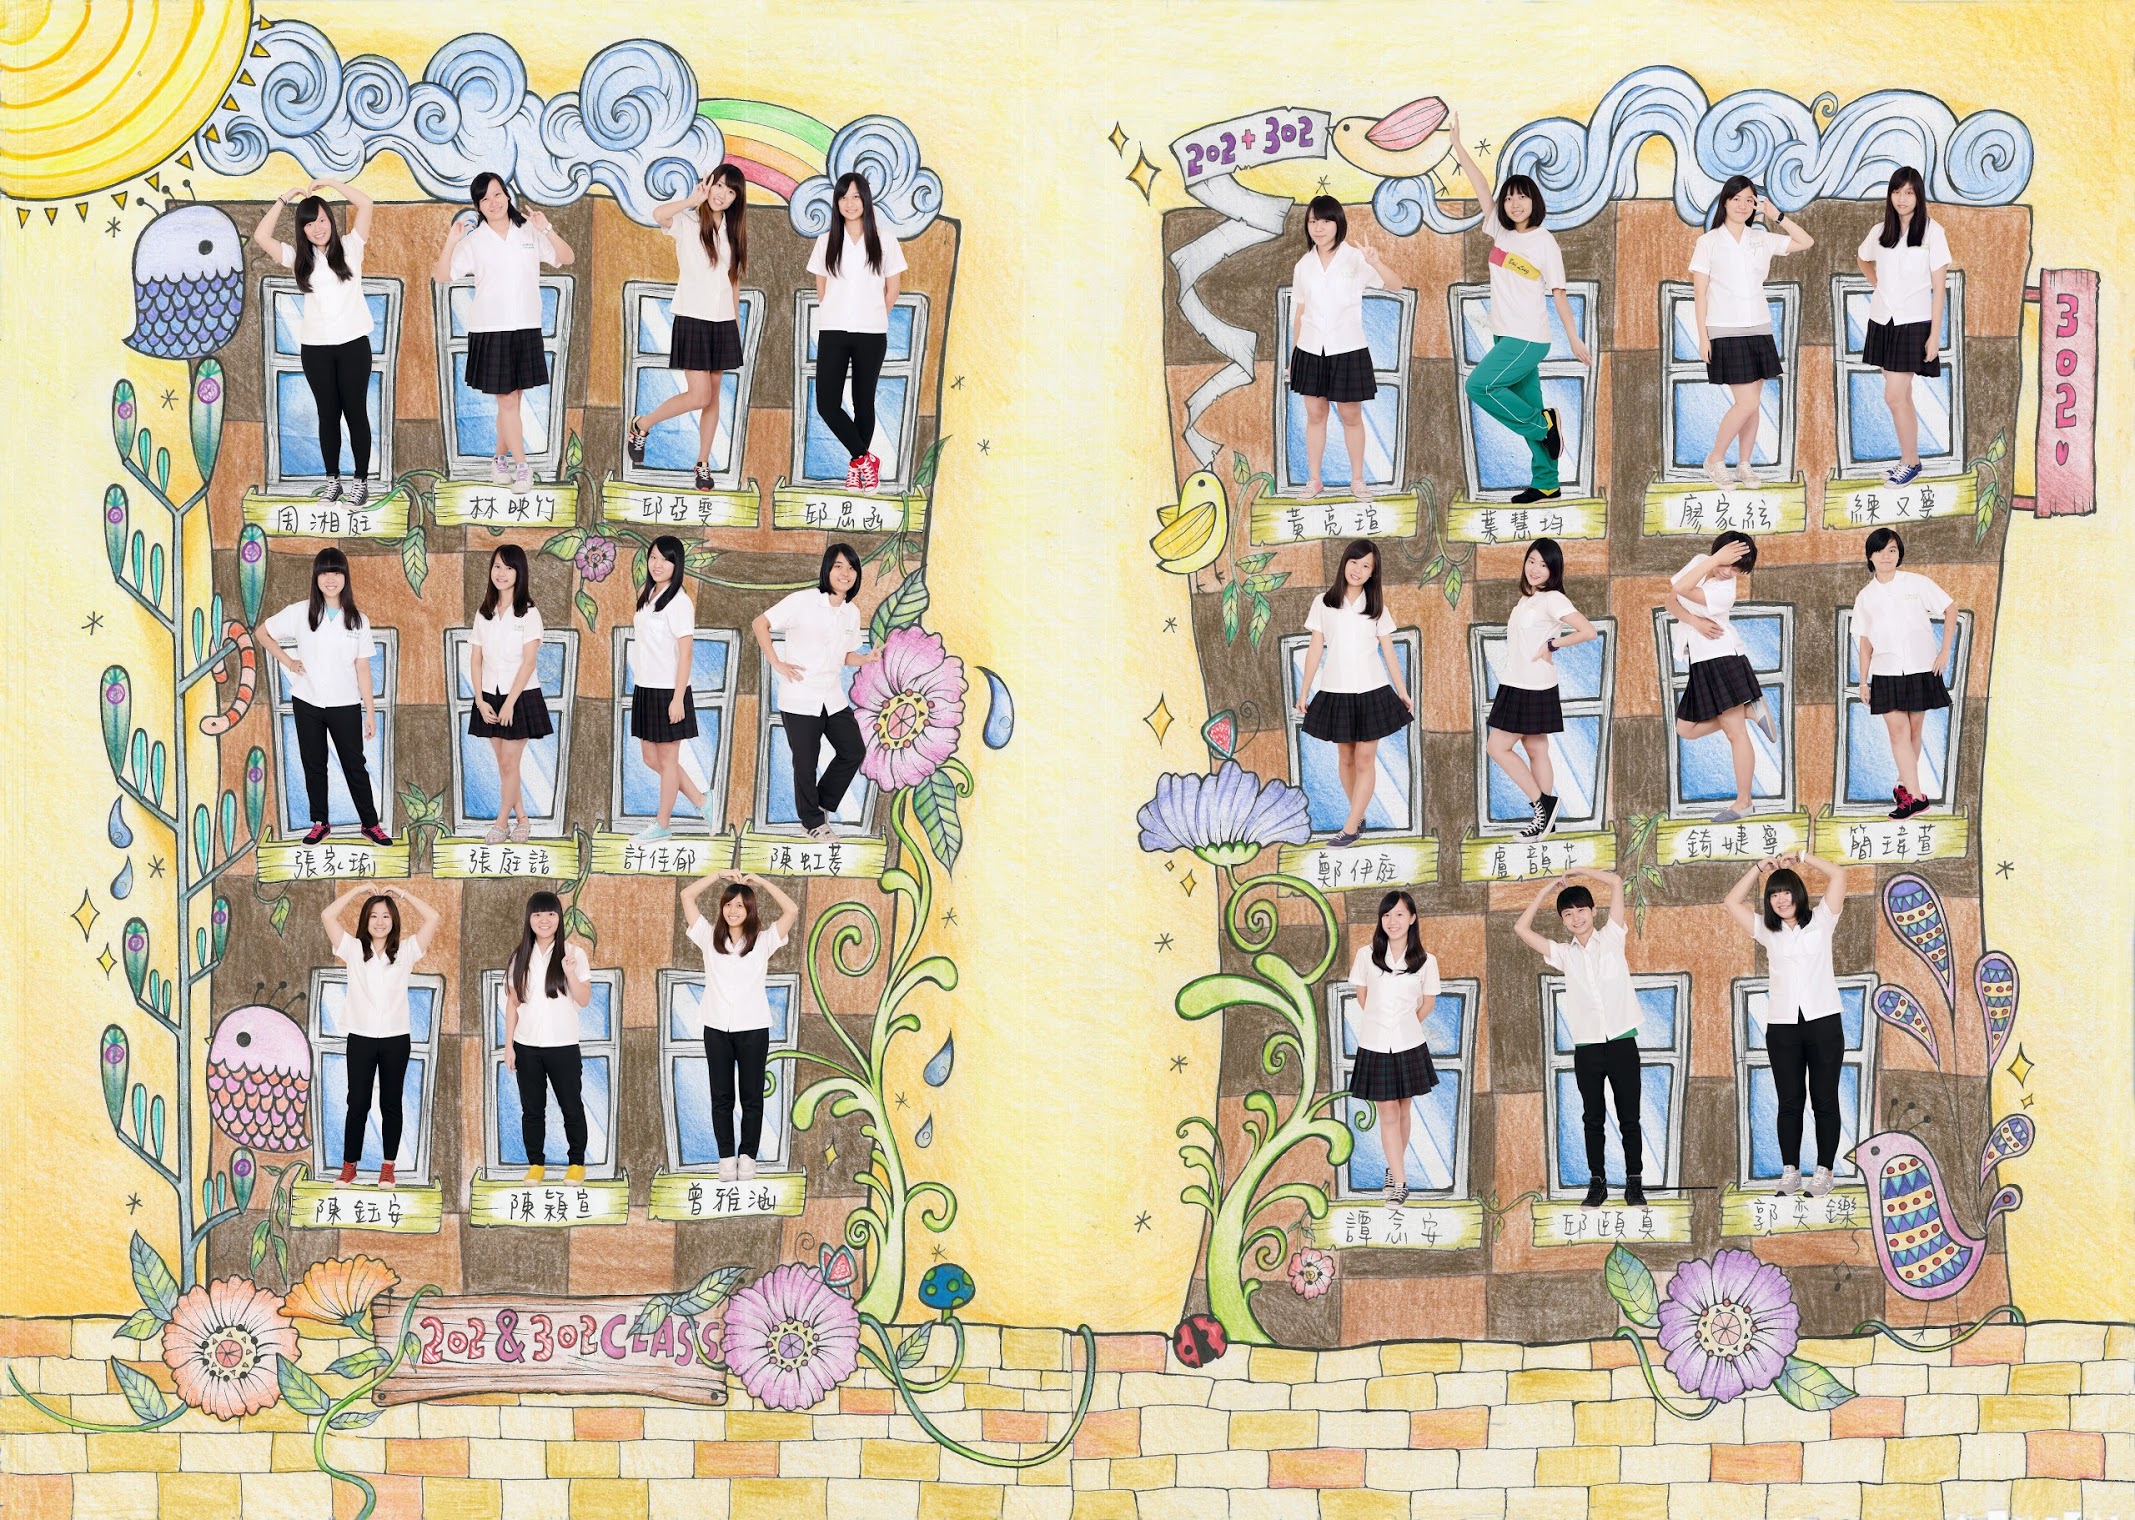 周湘庭
林映竹
邱亞雯
邱思函
張家瑜
張庭語
許佳郁
陳虹蓁
陳鈺安
陳穎宣
曾雅涵
202 & 302 CLASS
202+302
302
黃亮瑄
葉慧均
廖家絃
練又寧
鄭伊庭
盧韻芷
錡婕寧
簡瑋萱
譚念安
邱頤真
郭奕鑠